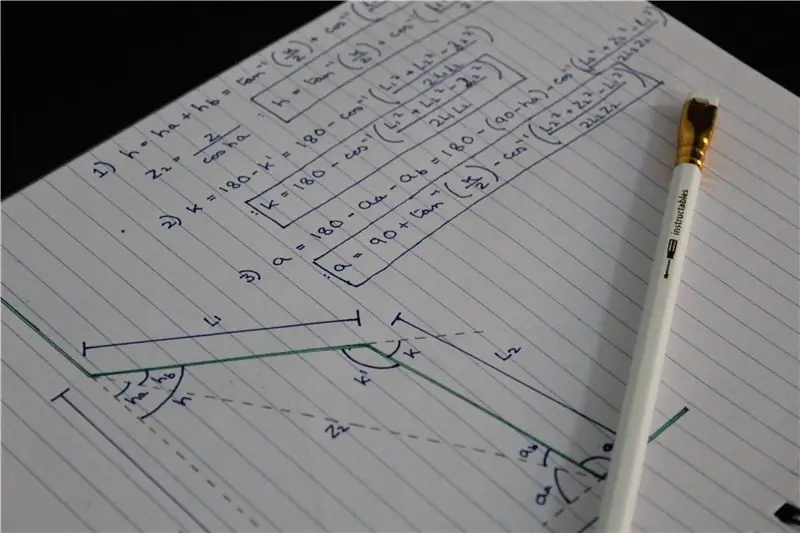 1) h = ha + hb = tan⁻¹(x/z) + cos⁻¹(L₁²
∴ h = tan⁻¹(x/z) + cos⁻¹(L
z₂ = z/cos ha
2) k = 180 - k' = 180 - cos⁻¹((L₁² + L₂² - z₂²)/2L₁L₂)
∴ k = 180 - cos⁻¹((L₁² + L₂² - z₂²)/2L₁L₂)
3) a = 180 - aa - ab = 180 - (90 - ha) - cos⁻¹((L₂² + z₂² - L₁²)/2L₂z₂)
∴ a = 90 + tan⁻¹(x/z) - cos⁻¹((L₂² + z₂² - L₁²)/2L₂z₂)
L₁
L₂
k
k'
hb
ha
h
z₂
ab
aa
a
instructables